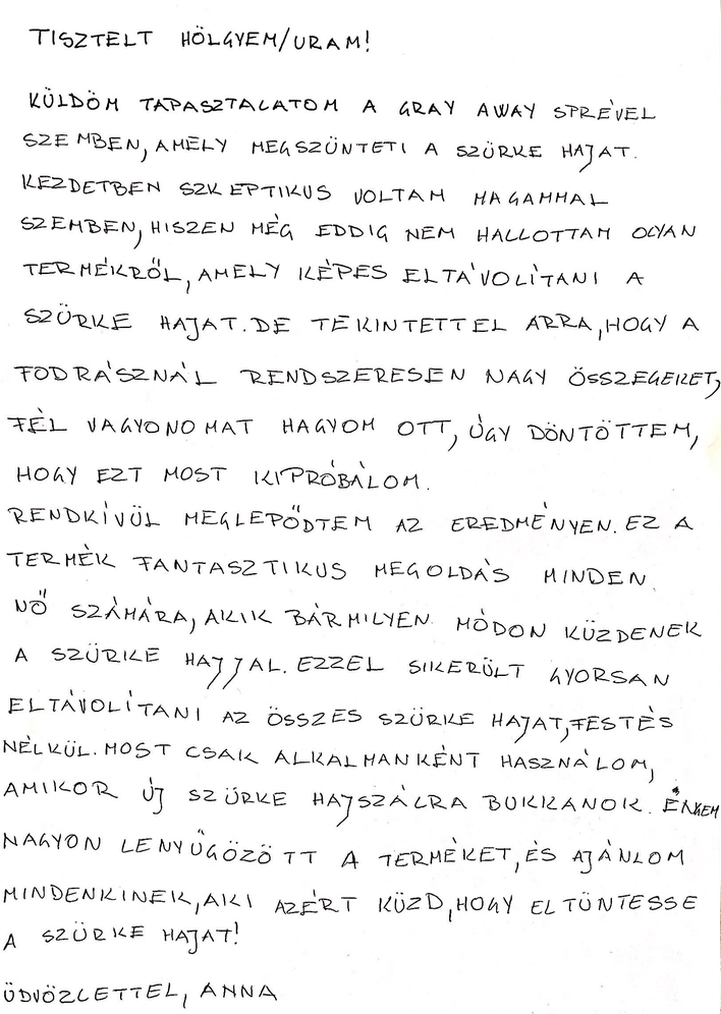 TISZTELT HÖLGYEM/URAM!
KÜLDÖM TAPASZTALATOM A GRAY AWAY SPRÉVEL
SZEMBEN, AMELY MEGSZÜNTETI A SZÜRKE HAJAT.
KEZDETBEN SZKEPTIKUS VOLTAM MAGAMMAL
SZEMBEN, HISZEN MÉG EDDIG NEM HALLOTTAM OLYAN
TERMÉKRŐL, AMELY KÉPES ELTÁVOLÍTANI A
SZÜRKE HAJAT. DE TEKINTETTEL ARRA, HOGY A
FODRÁSZNÁL RENDSZERESEN NAGY ÖSSZEGEKET,
FÉL VAGYONOMAT HAGYOM OTT, ÚGY DÖNTÖTTEM,
HOGY EZT MOST KIPRÓBÁLOM.
RENDKÍVÜL MEGLEPŐDTEM AZ EREDMÉNYEN. EZ A
TERMÉK FANTASZTIKUS MEGOLDÁS MINDEN
NŐ SZÁMÁRA, AKIK BÁRMILYEN MÓDON KÜZDENEK
A SZÜRKE HAJJAL. EZZEL SIKERÜLT GYORSAN
ELTÁVOLÍTANI AZ ÖSSZES SZÜRKE HAJAT, FESTÉS
NÉLKÜL. MOST CSAK ALKALMANKÉNT HASZNÁLOM,
AMIKOR ÚJ SZÜRKE HAJSZÁLRA BUKKANOK. ENGEM
NAGYON LENYŰGÖZÖTT A TERMÉKET, ÉS AJÁNLOM
MINDENKINEK, AKI AZÉRT KÜZD, HOGY ELTÜNTESSE
A SZÜRKE HAJAT!
ÜDVÖZLETTEL, ANNA